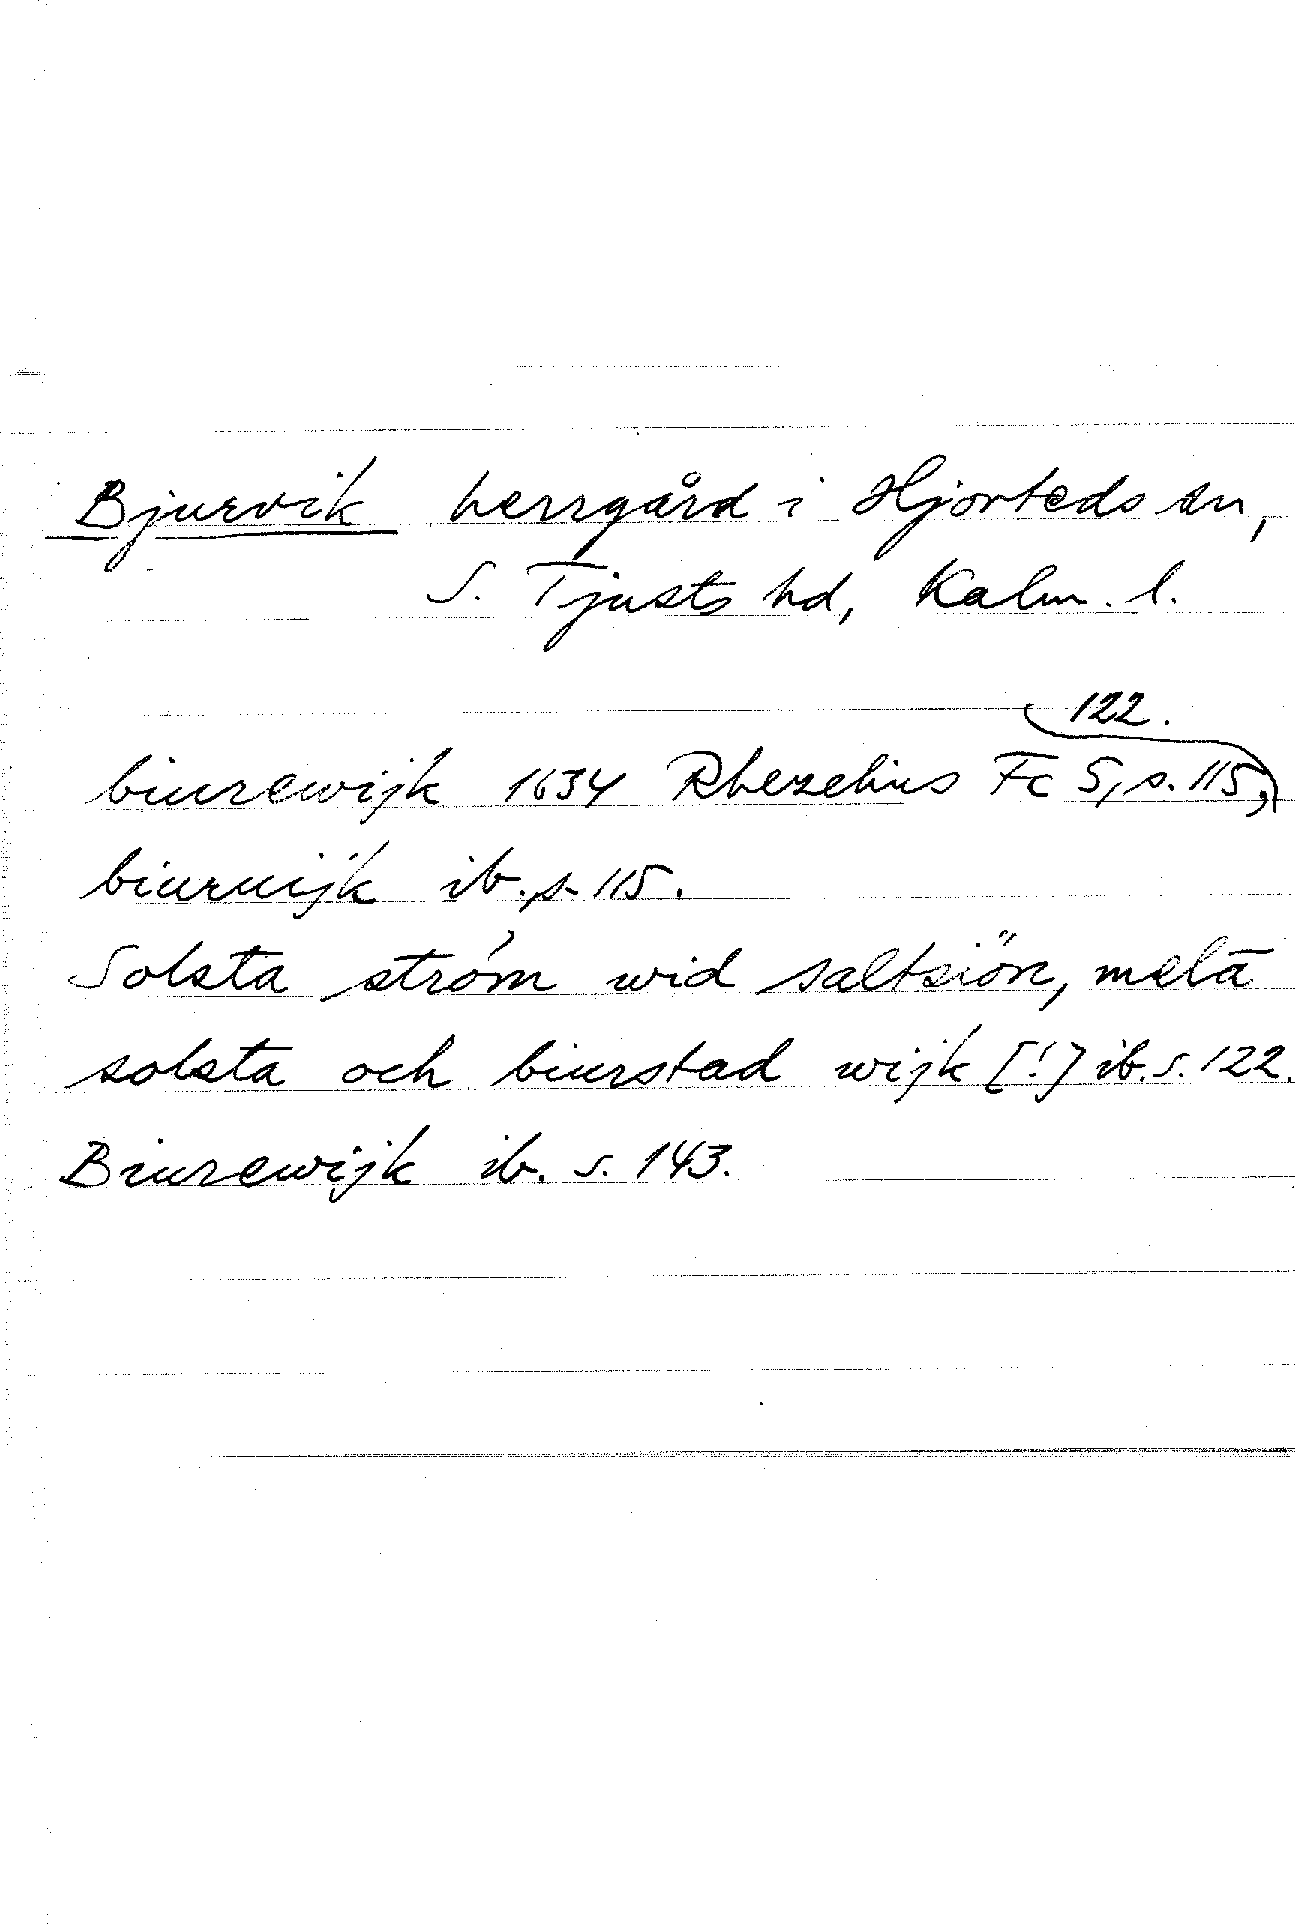 Bjurvik herrgård i Hjorteds sn,
S. Tjusts hd, Kalm. l.
122.
biurewijk 1634 Rhezelius Fc 5, s. 115,
biuruijk ib. s. 115.
Solsta ström wid saltsiön, melā
solsta och biurstad wijk [!] ib. s. 122.
Biurewijk ib. s. 143.